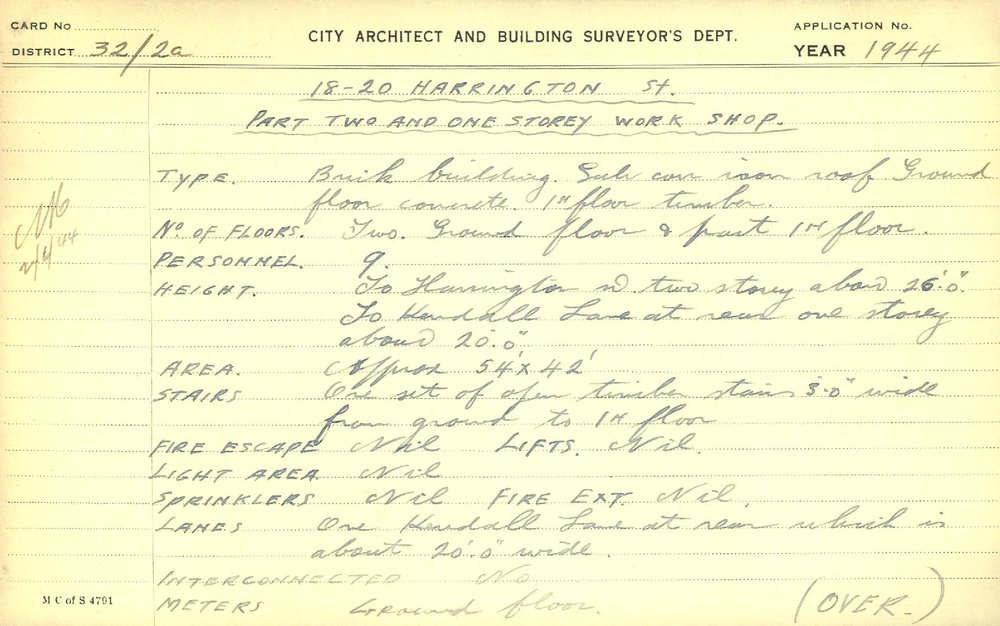 CARD No
DISTRICT 32/2a
CITY ARCHITECT AND BUILDING SURVEYOR'S DEPT.
APPLICATION No.
YEAR 1944
18-20 HARRINGTON St.
PART TWO AND ONE STOREY WORK SHOP.
TYPE. Brick building. Galv corr iron roof Ground
floor concrete. 1st floor timber.
No OF FLOORS. Two. Ground floor & part 1st floor.
PERSONNEL. 9.
HEIGHT. To Harrington St two storey about 26'.0".
To Kendall Lane at rear one storey
about 20'.0"
AREA. Approx 54' x 42'
STAIRS One set of open timber stairs 3'-0" wide
from ground to 1st floor
FIRE ESCAPE Nil LIFTS. Nil.
LIGHT AREA. Nil
SPRINKLERS Nil FIRE EXT. Nil
LANES One Kendall Lane at rear which is
about 20'.0" wide.
INTERCONNECTED No
METERS Ground floor.
M C of S 4791
(OVER.)